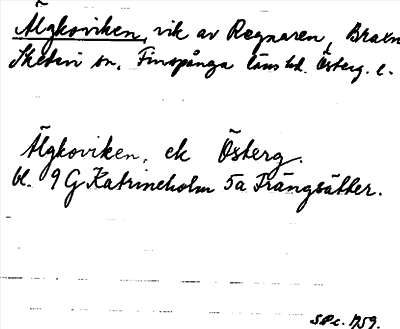 Älgkoviken, vik av Regnaren, Braxn
Skedevi sn, Finspånga läns hd. Österg. l.
Älgkoviken, ek Österg.
bl. 9 G Katrineholm 5a Trängsätter.
1959.